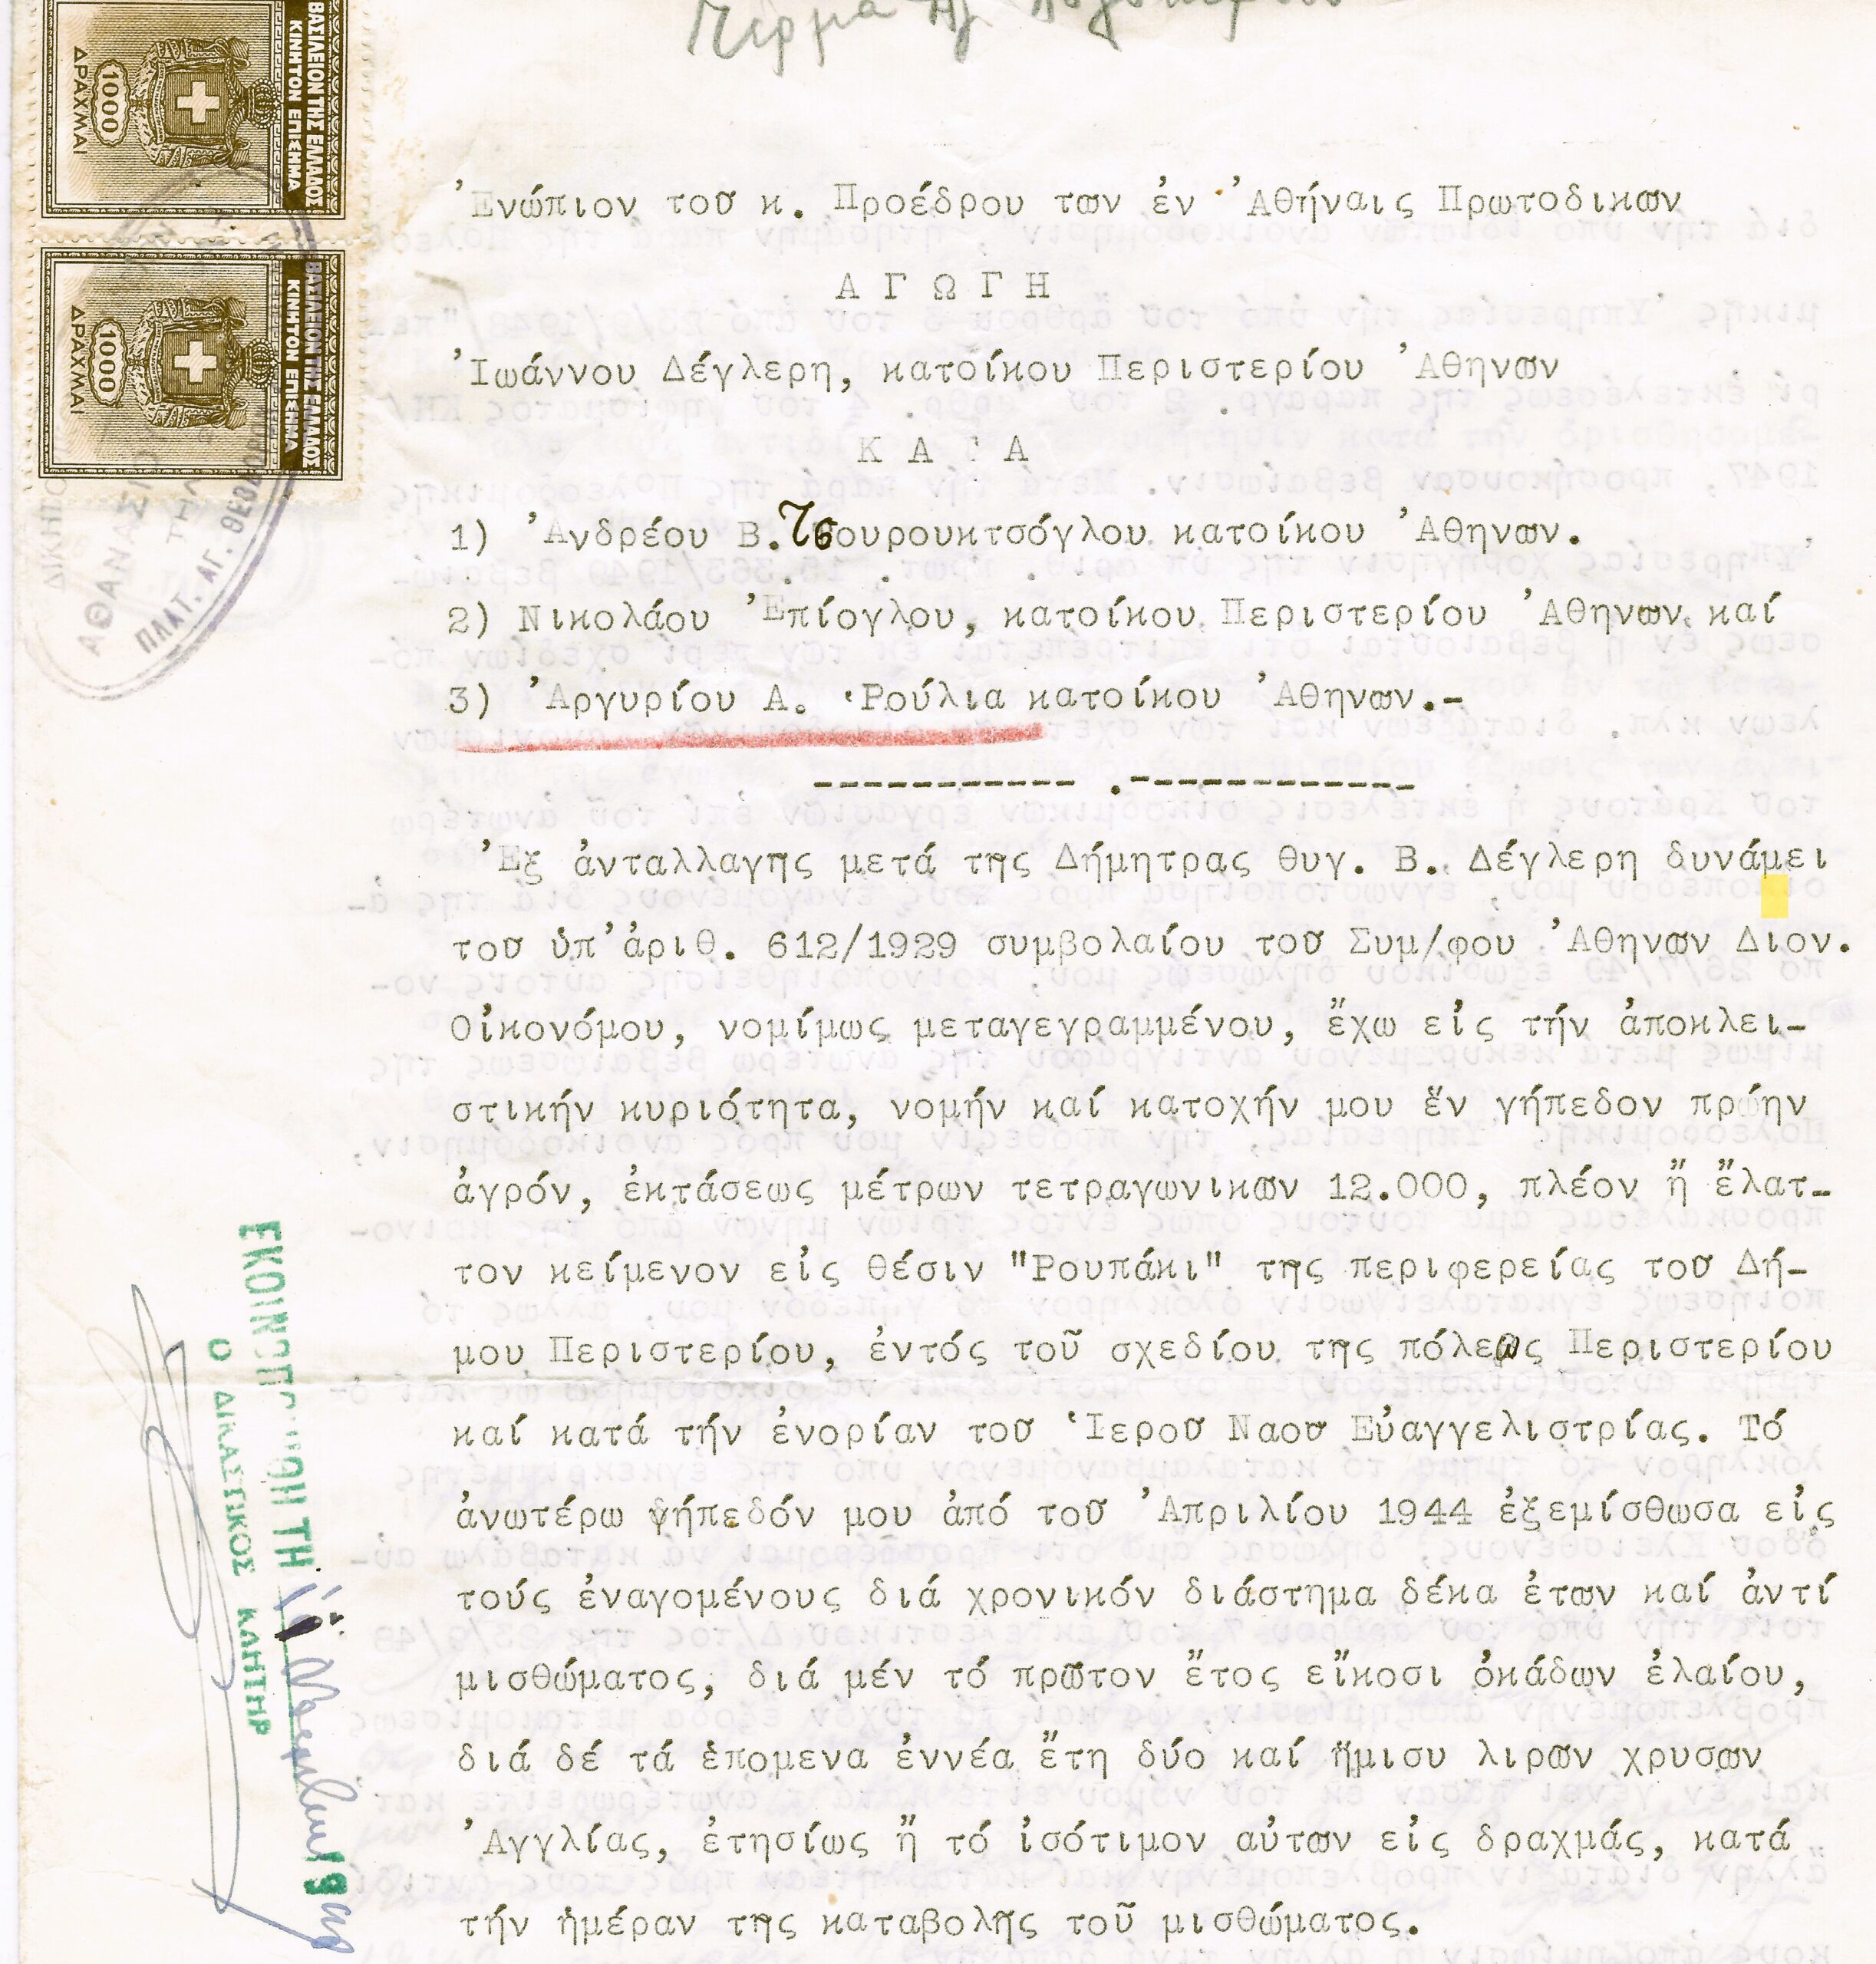 ΒΑΣΙΛΕΙΟΝ ΤΗΣ ΕΛΛΑΔΟΣ
ΚΙΝΗΤΟΝ ΕΠΙΣΗΜΑ
1000
ΔΡΑΧΜΑΙ
ΒΑΣΙΛΕΙΟΝ ΤΗΣ ΕΛΛΑΔΟΣ
ΚΙΝΗΤΟΝ ΕΠΙΣΗΜΑ
1000
ΔΡΑΧΜΑΙ
ΠΛΑΤ. ΑΓ.
Ἐνώπιον τοῦ κ. Προέδρου τῶν ἐν Ἀθήναις Πρωτοδικῶν
Α Γ Ω Γ Η
Ἰωάννου Δέγλερη, κατοίκου Περιστερίου Ἀθηνῶν
Κ Α Τ Α
1) Ἀνδρέου Β. Τσουρουκτσόγλου κατοίκου Ἀθηνῶν.
2) Νικολάου Ἐπίογλου, κατοίκου Περιστερίου Ἀθηνῶν καί
3) Ἀργυρίου Α. Ῥούλια κατοίκου Ἀθηνῶν.-
----------- .-------------
Ἐξ ἀνταλλαγῆς μετά τῆς Δήμητρας θυγ. Β. Δέγλερη δυνάμει
τοῦ ὑπ'ἀριθ. 612/1929 συμβολαίου τοῦ Συμ/φου Ἀθηνῶν Διον.
Οἰκονόμου, νομίμως μεταγεγραμμένου, ἔχω εἰς τήν ἀποκλει-
στικήν κυριότητα, νομήν καί κατοχήν μου ἕν γήπεδον πρώην
ἀγρόν, ἐκτάσεως μέτρων τετραγωνικῶν 12.000, πλέον ἤ ἔλατ-
τον κείμενον εἰς θέσιν "Ρουπάκι" τῆς περιφερείας τοῦ Δή-
μου Περιστερίου, ἐντός τοῦ σχεδίου τῆς πόλεως Περιστερίου
καί κατά τήν ἐνορίαν τοῦ Ἱεροῦ Ναοῦ Εὐαγγελιστρίας. Τό
ἀνωτέρω γήπεδόν μου ἀπό τοῦ Ἀπριλίου 1944 ἐξεμίσθωσα εἰς
τούς ἐναγομένους διά χρονικόν διάστημα δέκα ἐτῶν καί ἀντί
μισθώματος, διά μέν τό πρῶτον ἔτος εἴκοσι ὀκάδων ἐλαίου,
διά δέ τά ἑπομενα ἐννέα ἔτη δύο καί ἥμισυ λιρῶν χρυσῶν
Ἀγγλίας, ἐτησίως ἤ τό ἰσότιμον αὐτῶν εἰς δραχμάς, κατά
τήν ἡμέραν τῆς καταβολῆς τοῦ μισθώματος.
Ο ΔΙΚΑΣΤΙΚΟΣ ΚΛΗΤΗΡ